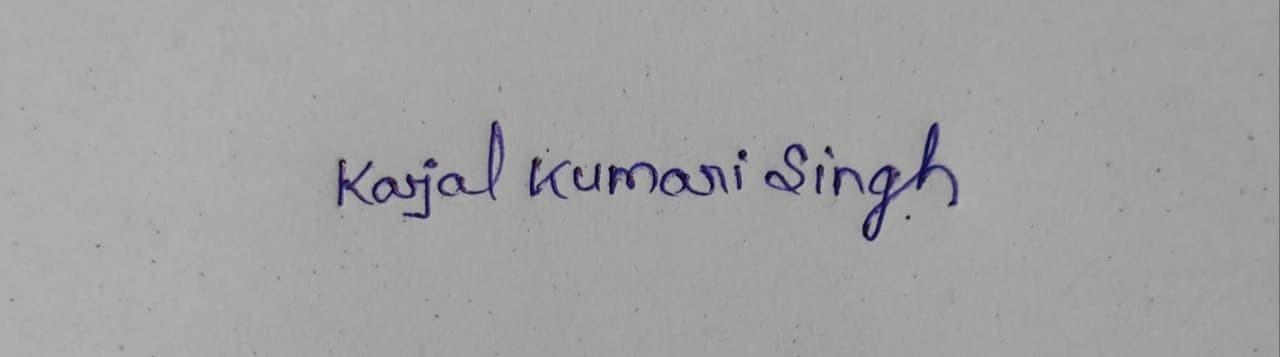 Kajal Kumari Singh